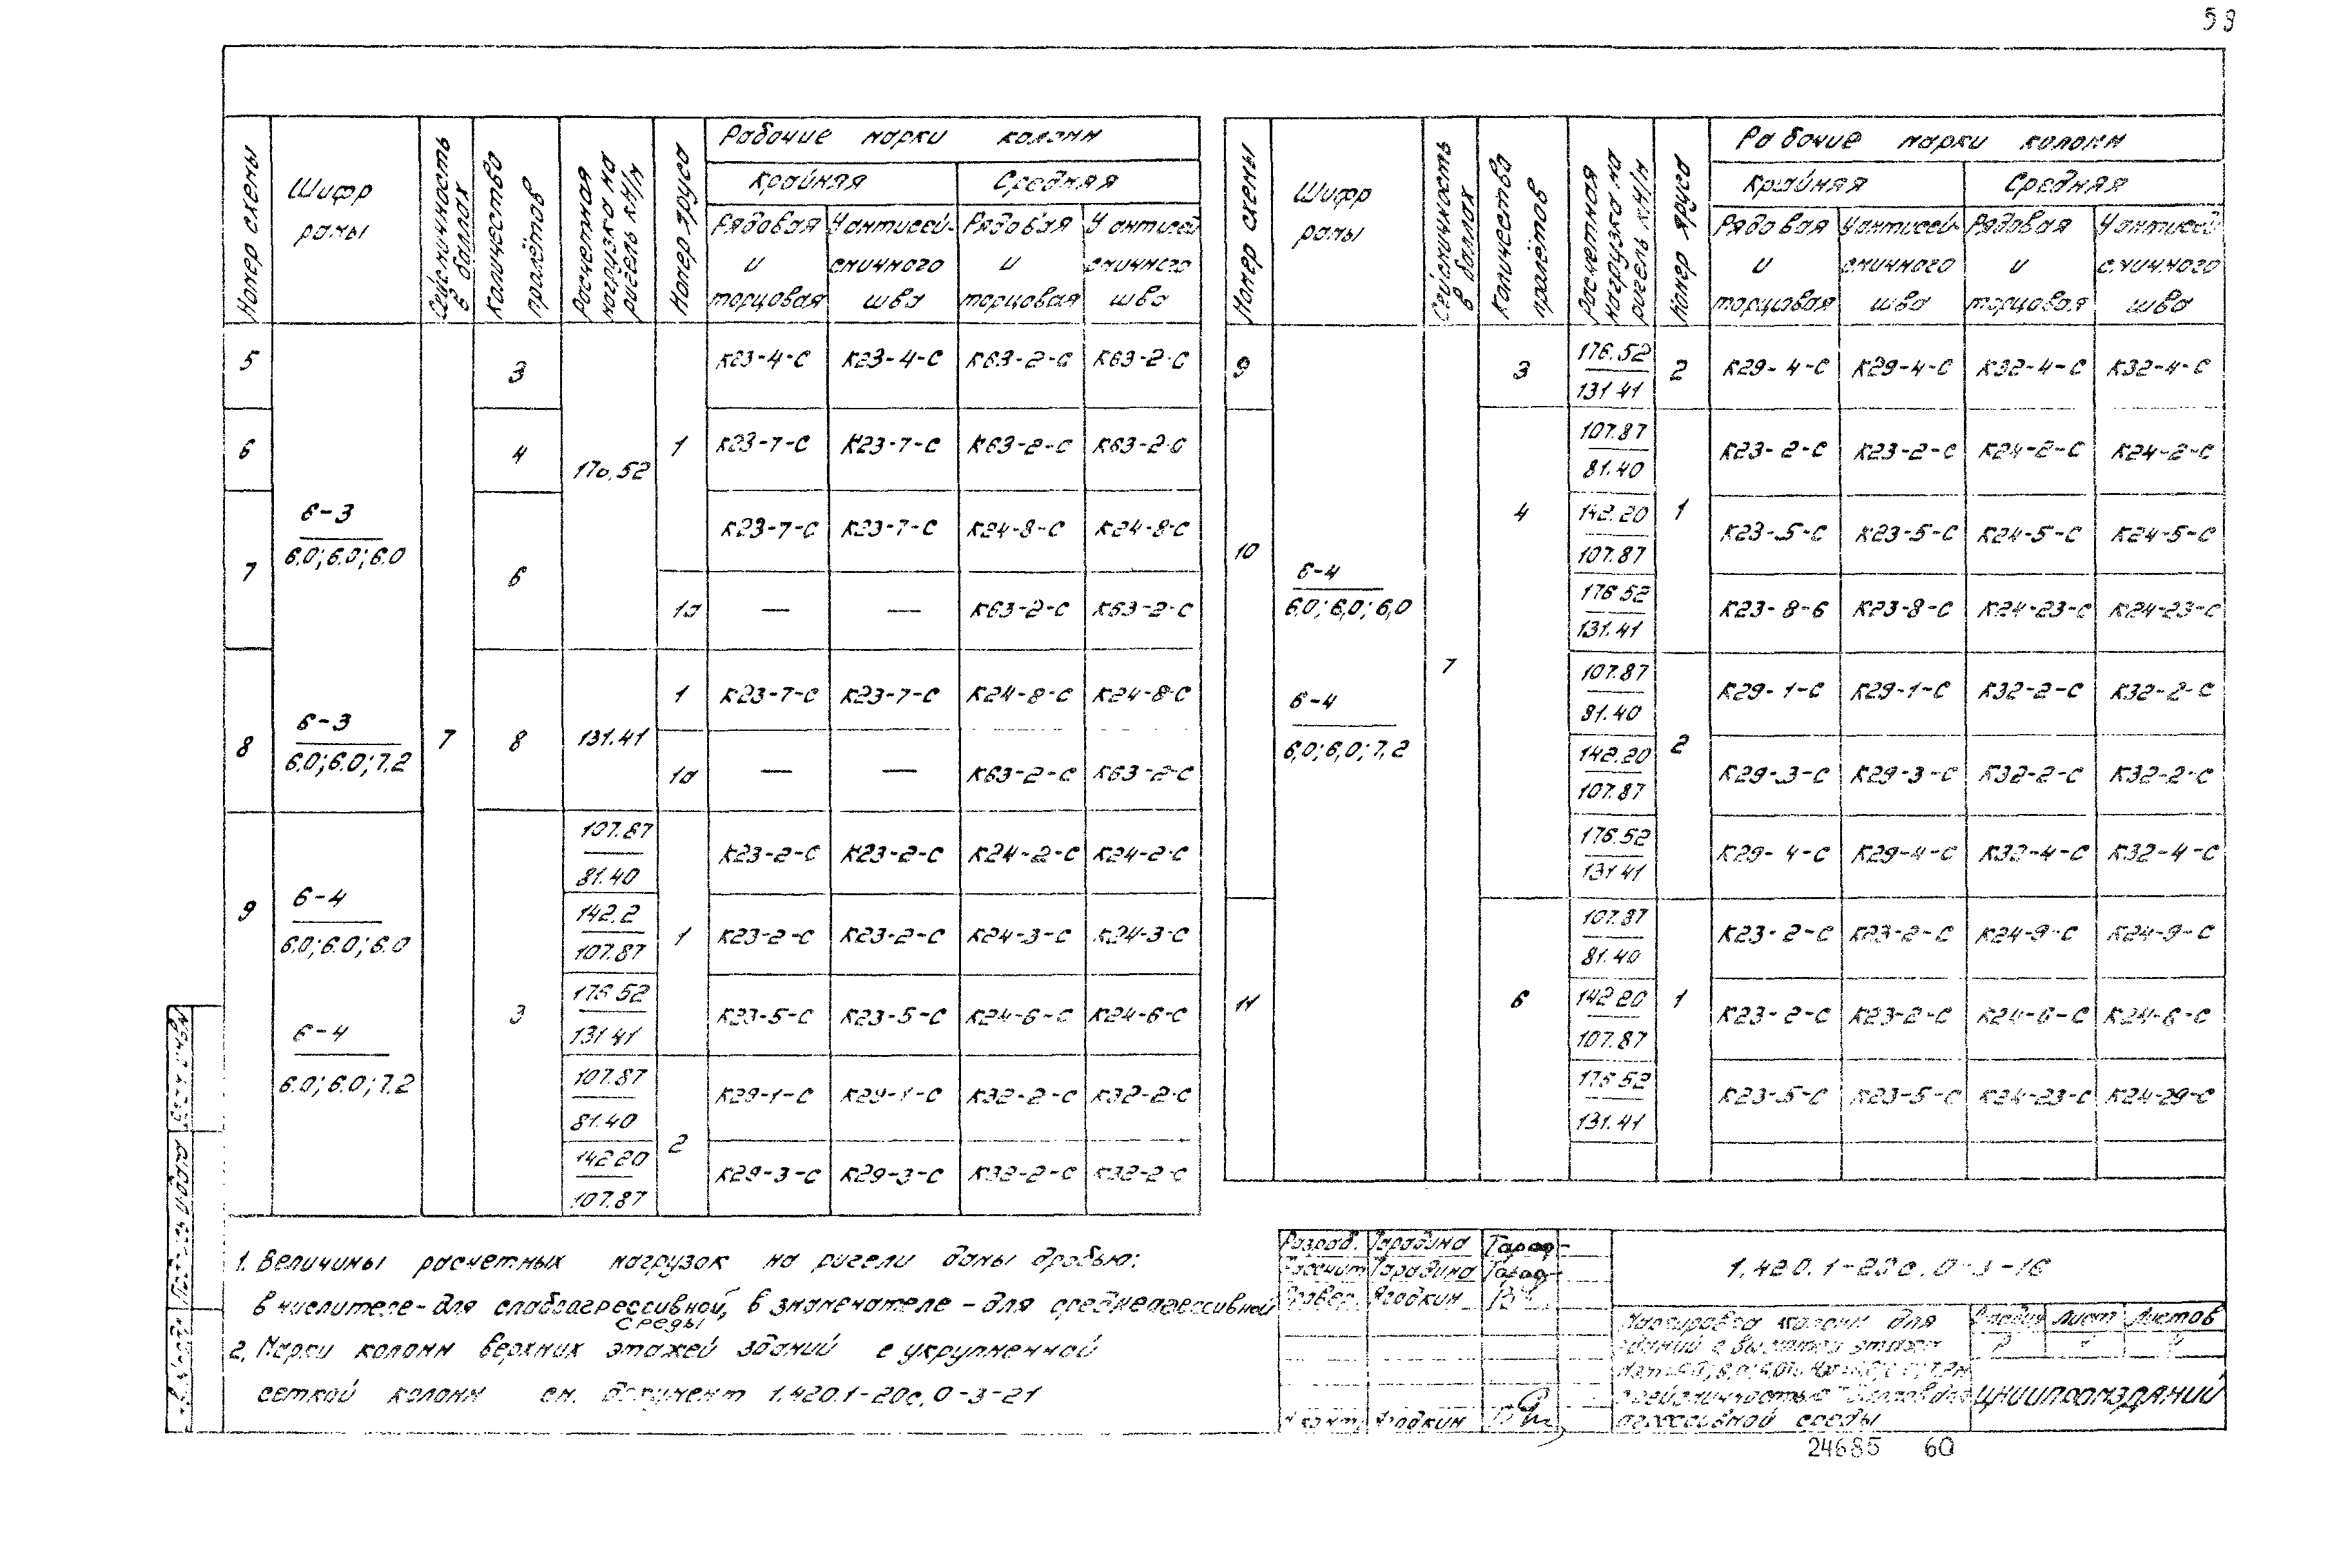 59
Номер схемы
Шифр рамы
Сейсмичность в баллах
Количество пролётов
Расчетная нагрузка на ригель кН/м
Номер яруса
Рабочие марки колонн
Крайняя Средняя
Рядовая и торцовая
У антисейсмичного шва
Рядовая и торцовая
У антисейсмичного шва
5 3 К23-4-С К23-4-С К63-2-С К63-2-С
6 4 170.52 1 К23-7-С К23-7-С К63-2-С К63-2-С
6-3
6.0; 6.0; 6.0
7 6 К23-7-С К23-7-С К24-8-С К24-8-С
1а — — К63-2-С К63-2-С
6-3
6.0; 6.0; 7.2
8 7 8 131.41 1 К23-7-С К23-7-С К24-8-С К24-8-С
1а — — К63-2-С К63-2-С
9 3
6-4
6.0; 6.0; 6.0
6-4
6.0; 6.0; 7.2
107.87
81.40
1 К23-2-С К23-2-С К24-2-С К24-2-С
142.2
107.87
К23-2-С К23-2-С К24-3-С К24-3-С
176.52
131.41
К23-5-С К23-5-С К24-6-С К24-6-С
107.87
81.40
2 К29-1-С К29-1-С К32-2-С К32-2-С
142.20
107.87
К29-3-С К29-3-С К32-2-С К32-2-С
Номер схемы
Шифр рамы
Сейсмичность в баллах
Количество пролётов
Расчетная нагрузка на ригель кН/м
Номер яруса
Рабочие марки колонн
Крайняя Средняя
Рядовая и торцовая
У антисейсмичного шва
Рядовая и торцовая
У антисейсмичного шва
9 3
176.52
131.41
2 К29-4-С К29-4-С К32-4-С К32-4-С
10 4 7
6-4
6,0; 6,0; 6,0
6-4
6,0; 6,0; 7,2
107.87
81.40
1 К23-2-С К23-2-С К24-2-С К24-2-С
142.20
107.87
К23-5-С К23-5-С К24-5-С К24-5-С
176.52
131.41
К23-8-6 К23-8-С К24-23-С К24-23-С
107.87
81.40
2 К29-1-С К29-1-С К32-2-С К32-2-С
142.20
107.87
К29-3-С К29-3-С К32-2-С К32-2-С
176.52
131.41
К29-4-С К29-4-С К32-4-С К32-4-С
11 6
107.87
81.40
1 К23-2-С К23-2-С К24-9-С К24-9-С
142.20
107.87
К23-2-С К23-2-С К24-6-С К24-6-С
176.52
131.41
К23-5-С К23-5-С К24-23-С К24-29-С
1. Величины расчетных нагрузок на ригели даны дробью:
в числителе - для слабоагрессивной, в знаменателе - для среднеагессивной
среды
2. Марки колонн верхних этажей зданий с укрупненной
сеткой колонн см. документ 1.420.1-20с.0-3-21
Разраб. Тарадина Тарад-
Рассчит. Тарадина Тарад-
Провер. Ягодкин
Н.конт. Ягодкин
1.420.1-20с.0-3-16
Маркировка колонн для
зданий с высотой этажей
агрессивной среды
Стадия Лист Листов
Р
ЦНИИПРОМЗДАНИЙ
24685 60